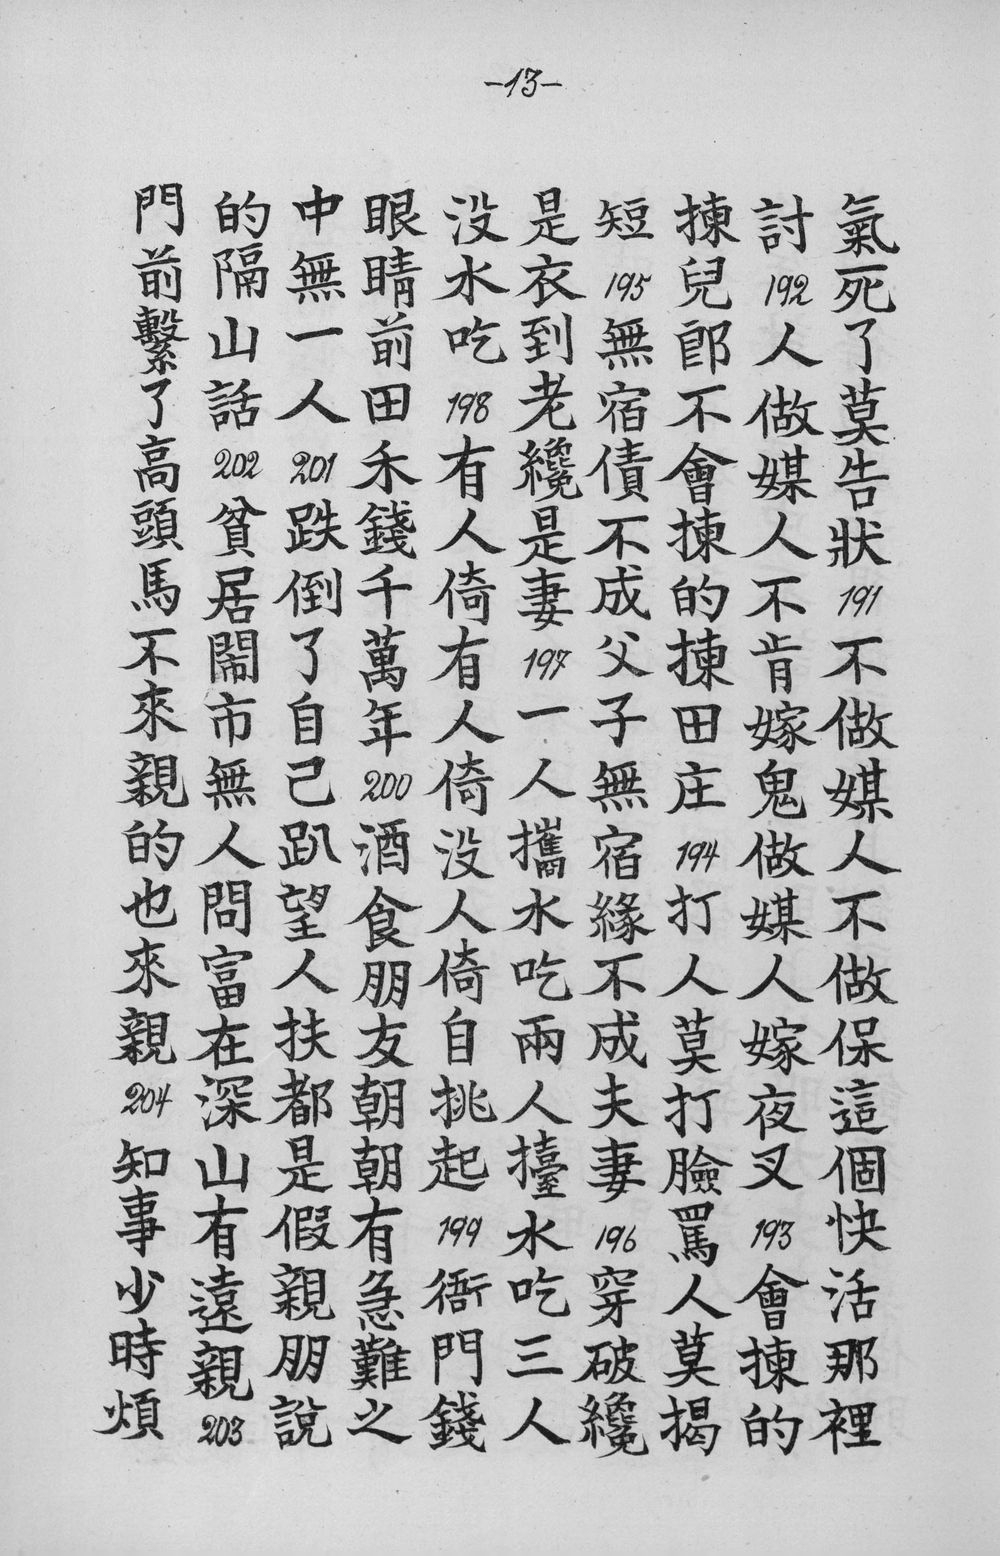 -13-
氣死了莫告狀191不做媒人不做保這個快活那裡
討192人做媒人不肯嫁鬼做媒人嫁夜叉193會揀的
揀兒郎不會揀的揀田庄194打人莫打臉罵人莫揭
短195無宿債不成父子無宿緣不成夫妻196穿破纔
是衣到老纔是妻197一人攜水吃兩人擡水吃三人
没水吃198有人倚有人倚没人倚自挑起199衙門錢
眼睛前田禾錢千萬年200酒食朋友朝朝有急難之
中無一人201跌倒了自己趴望人扶都是假親朋說
的隔山話202貧居鬧市無人問富在深山有遠親203
門前繫了高頭馬不來親的也來親204知事少時煩